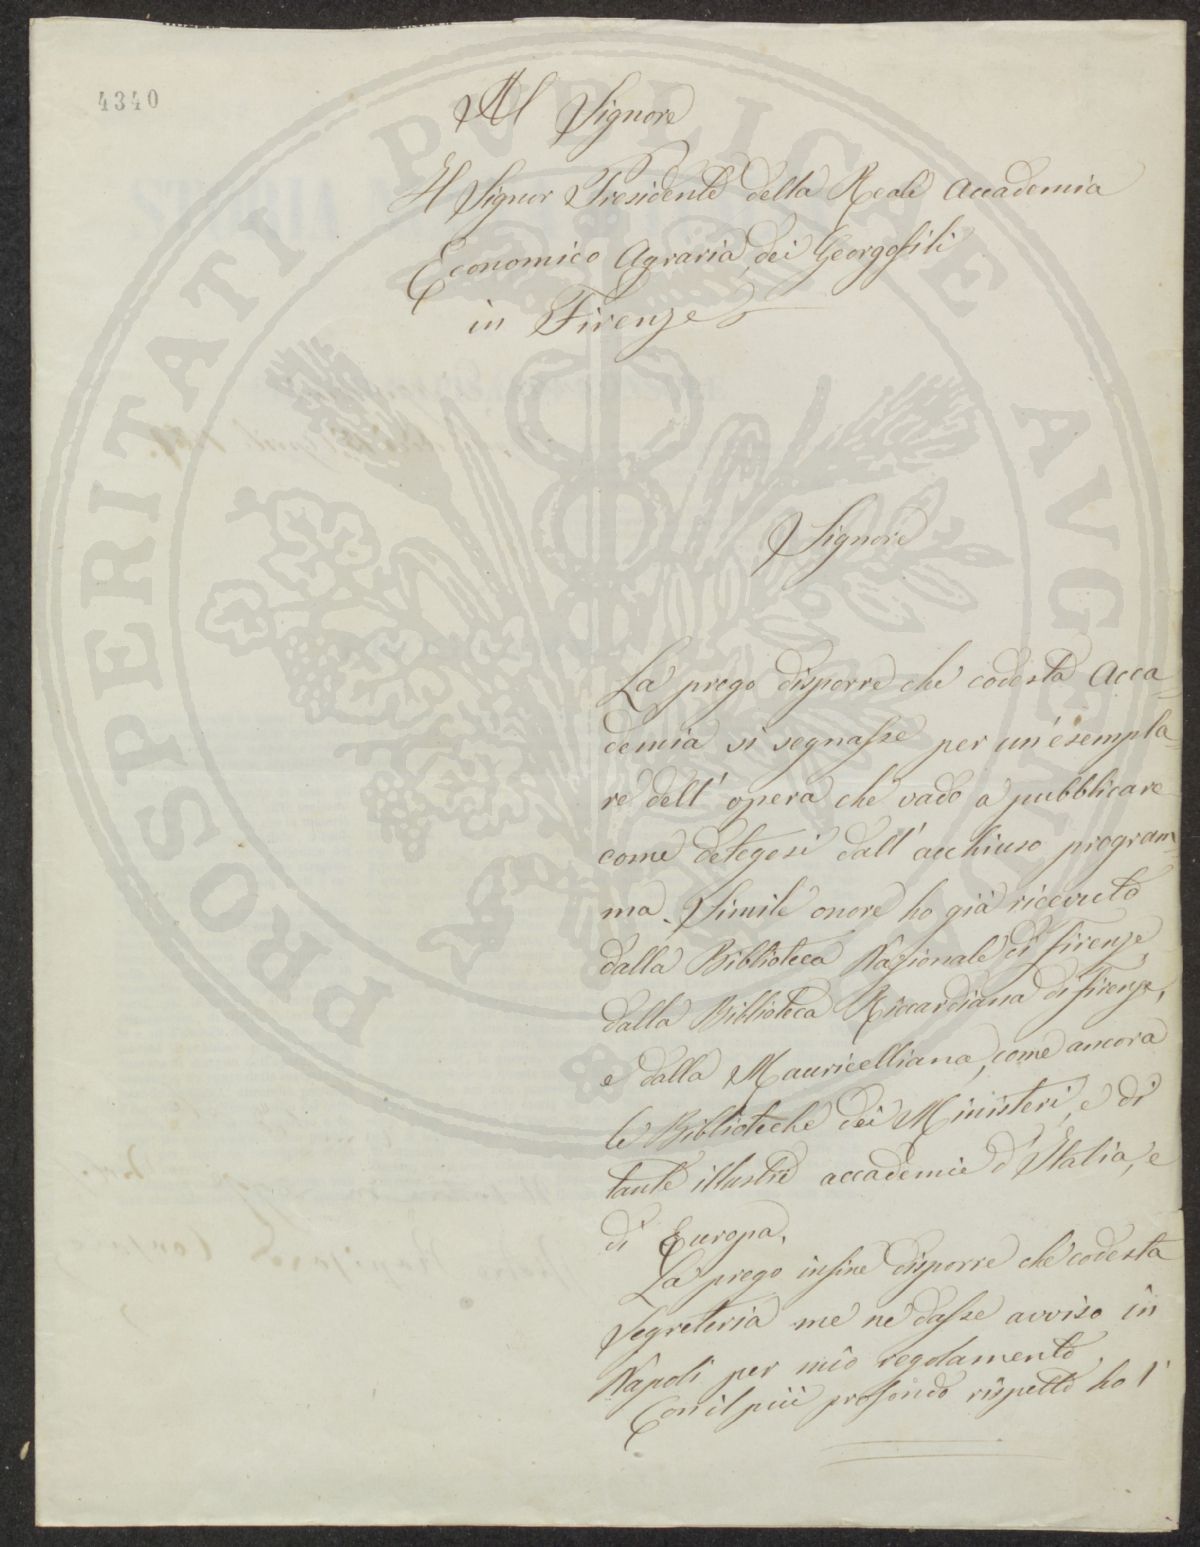 4340
Al Signore
Il Signor Presidente della Reale Accademia
Economico Agraria, dei Georgofili
in Firenze
Signore
La prego disporre che codesta Acca-
demia si segnasse per un' esempla-
re dell' opera che vado a pubblicare
come detegesi dall' acchiuso program-
ma. Simile onore ho già ricevuto
dalla Biblioteca Nazionale di Firenze,
dalla Biblioteca Riccardiana di Firenze,
e dalla Mauricelliana, come ancora
le Biblioteche dei Ministeri, e di
tante illustri accademie d' Italia, e
di Europa.
La prego infine disporre che codesta
Segreteria me ne dasse avviso in
Napoli per mio regolamento.
Con il più profondo rispetto ho l'
PROSPERITATI PVBLICAE AVGENDAE